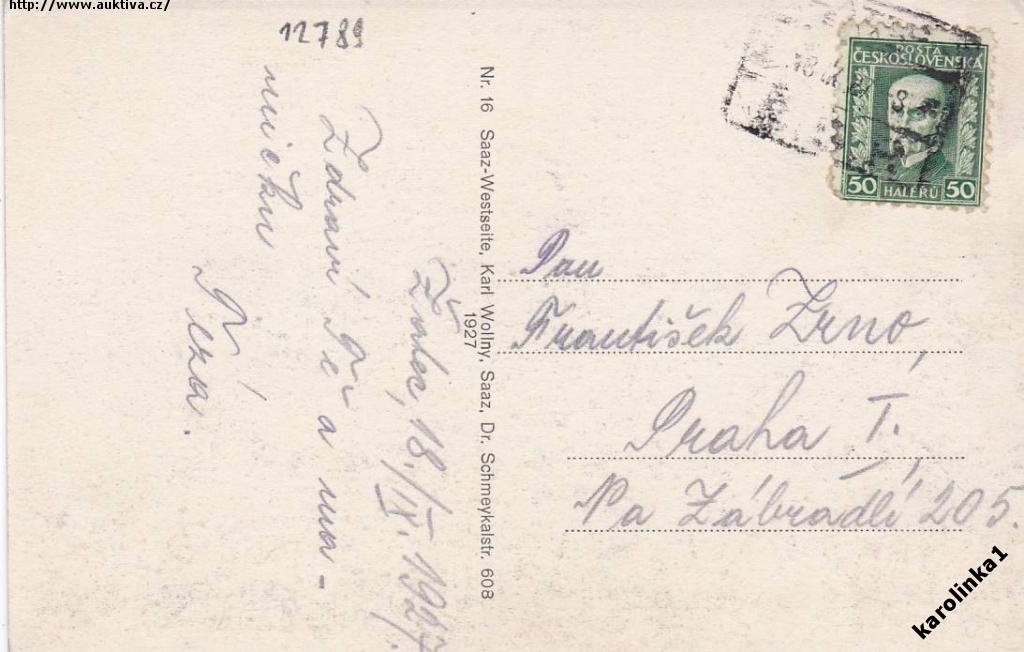 http://www.auktiva.cz/
12789
Žatec, 18./IX. 1927.
Zdraví Tě a ma-
mičku
Nr. 16 Saaz-Westseite, Karl Wollny, Saaz, Dr. Schmeykalstr. 608
1927
POŠTA
ČESKOSLOVENSKÁ
50 HALÉŘŮ 50
Pan
František Zrno,
Praha I.
Na Zábradlí 205.
karolinka1